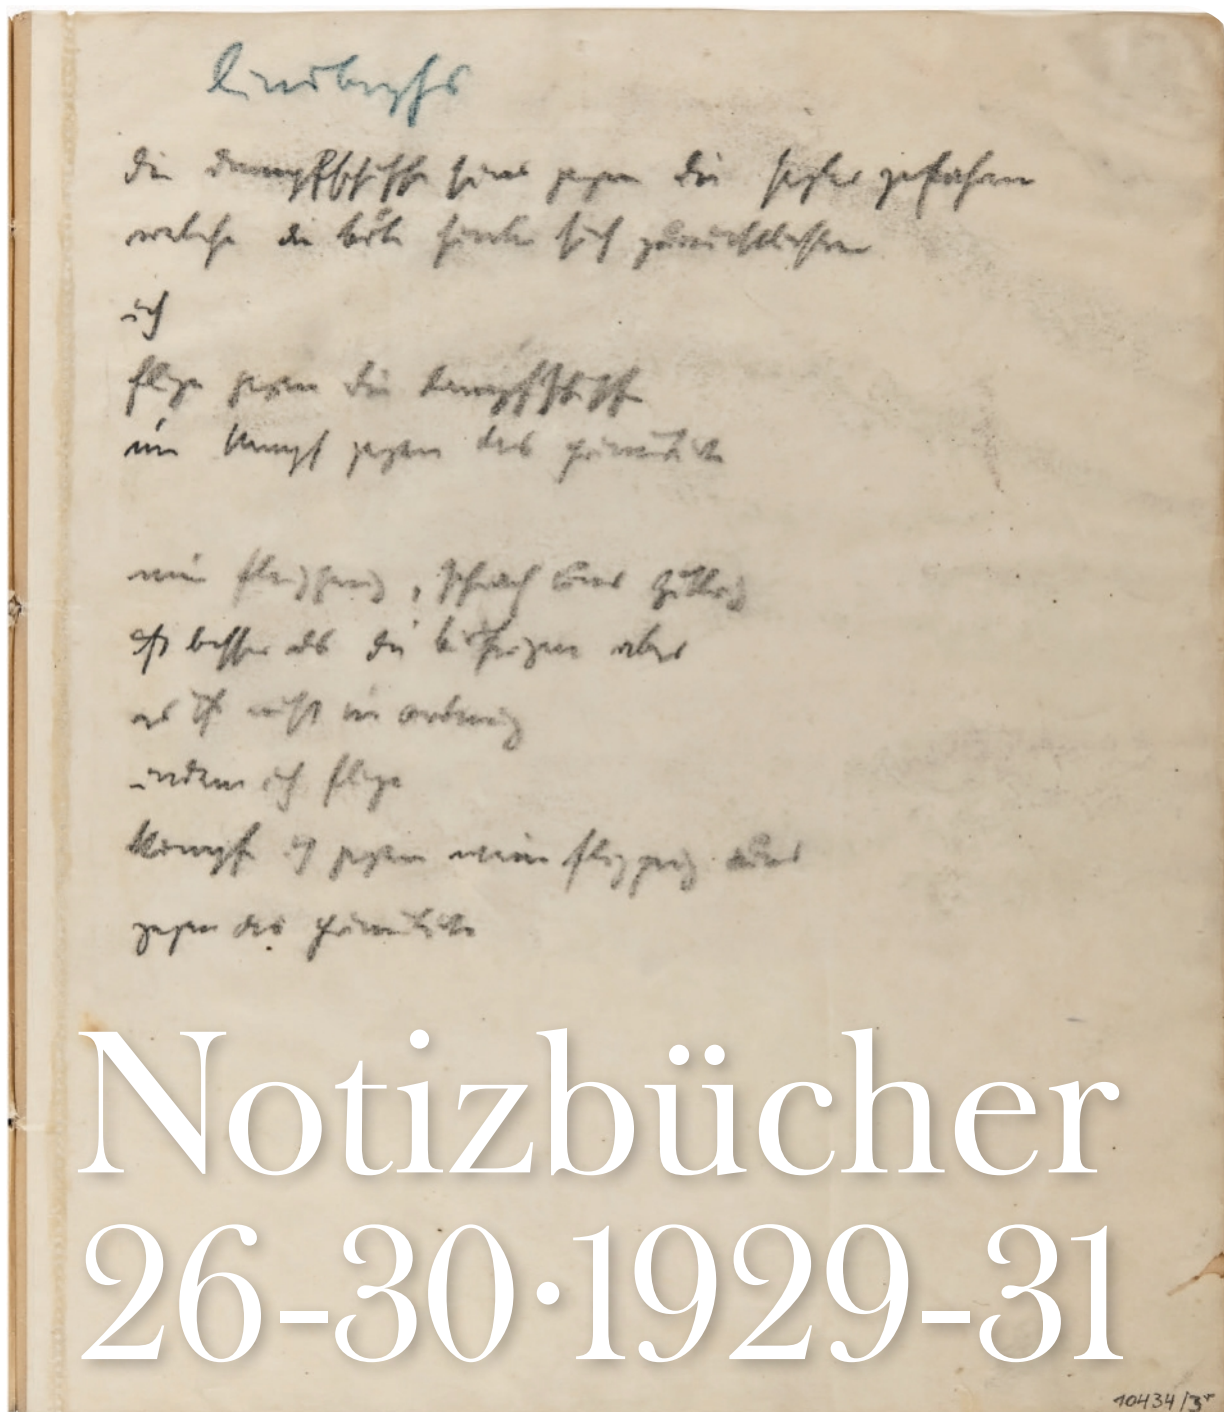 lindberghs
die dampfschiffe sind gegen die segler gefahren
welche die hinter sich zurückließen
ich
fliege gegen die dampfschiffe
im kampf gegen das primitive
mein flugzeug, schwach und zittrig
ist besser als die bisherigen aber
es ist nicht in ordnung
indem ich fliege
kämpfe ich gegen mein flugzeug und
gegen das primitive
Notizbücher
26-30·1929-31
10434/3r